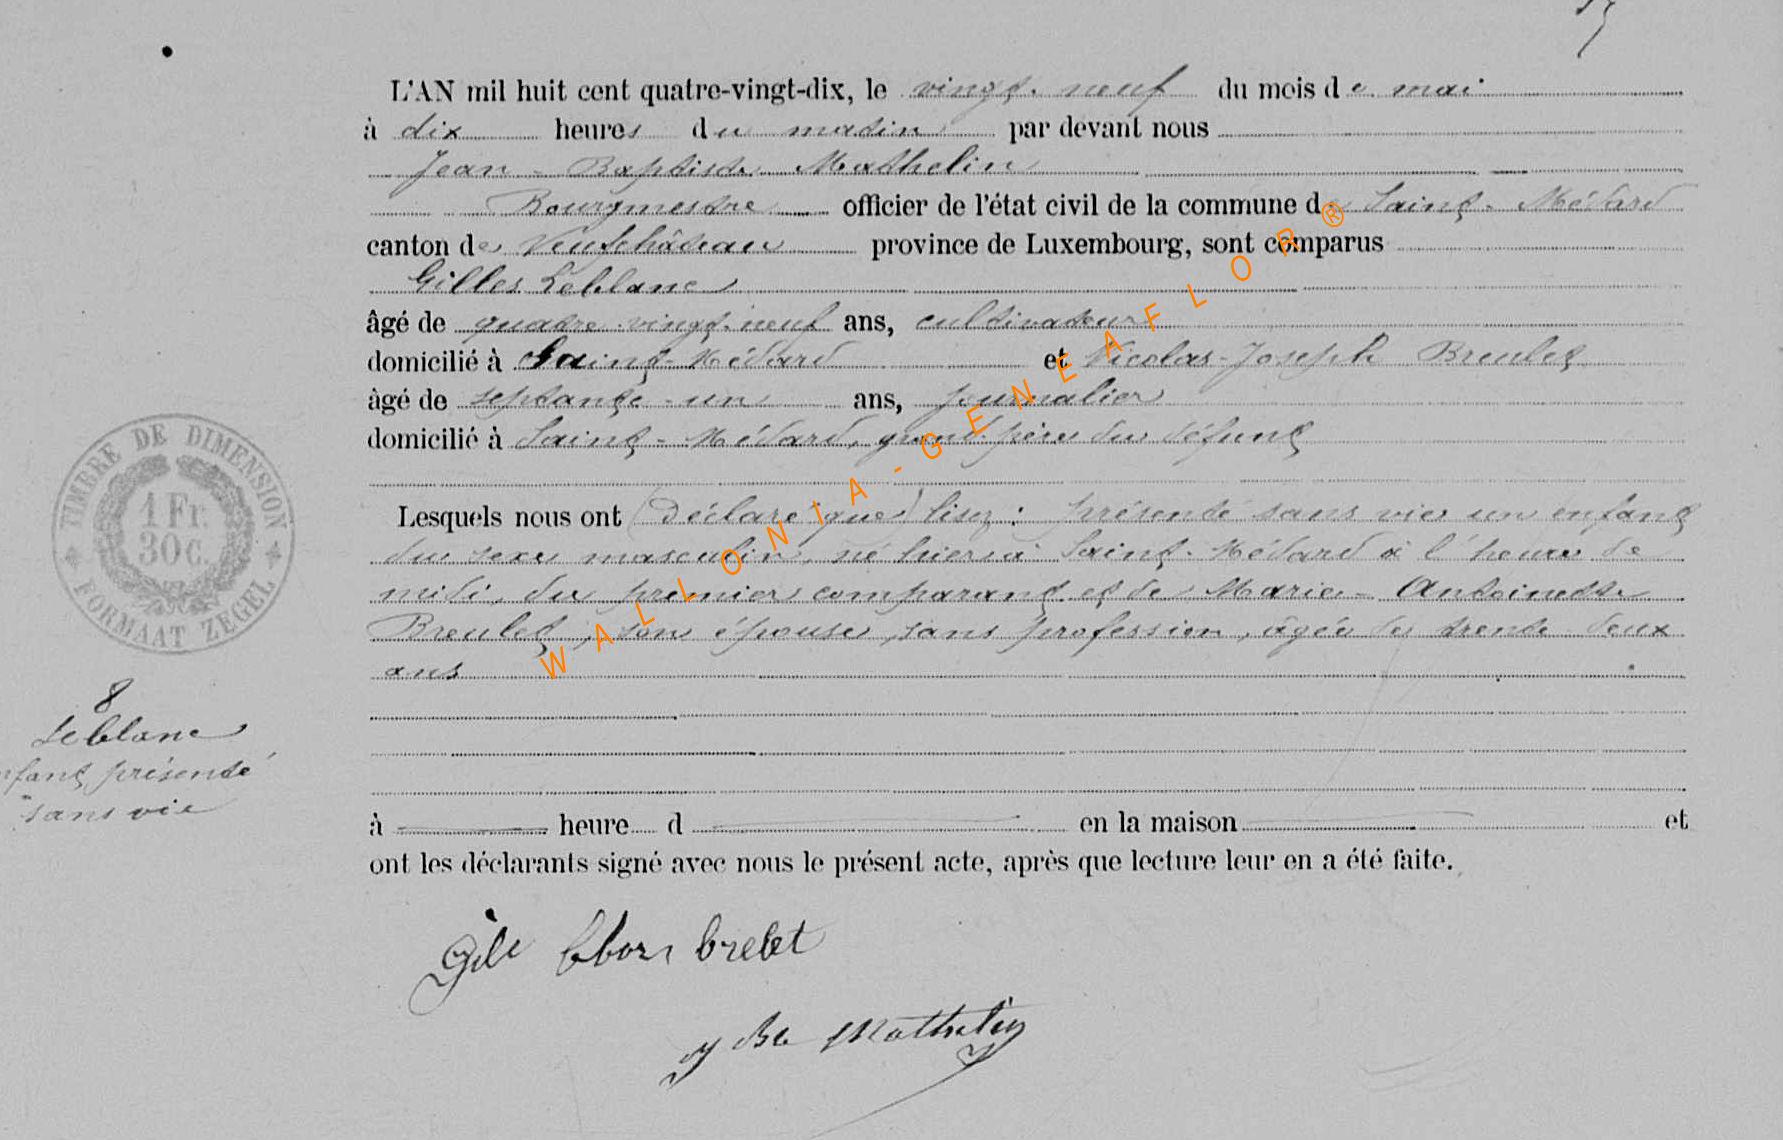 L'AN mil huit cent quatre-vingt-dix, le vingt-neuf du mois de mai
à dix heures du matin par devant nous
Jean-Baptiste Mathelin
Bourgmestre officier de l'état civil de la commune de Saint-Médard
canton de Neufchâteau province de Luxembourg, sont comparus
Gilles Leblanc
âgé de quatre-vingt-neuf ans, cultivateur
domicilié à Saint-Médard et Nicolas-Joseph Breulet
âgé de septante-un ans, journalier
domicilié à Saint-Médard, grand-père du défunt
Lesquels nous ont (déclaré que) lisez : présenté sans vie un enfant
du sexe masculin, né hier à Saint-Médard à l'heure de
midi, du premier comparant et de Marie-Antoinette
Breulet, son épouse, sans profession, âgée de trente-deux
ans
à heure d en la maison et
ont les déclarants signé avec nous le présent acte, après que lecture leur en a été faite.
TIMBRE DE DIMENSION
1 Fr.
30 C.
FORMAAT ZEGEL
8
Leblanc
nfant présenté
sans vie
brelet
J Bte Mathelin
WALLONIA-GENEAFLOR®